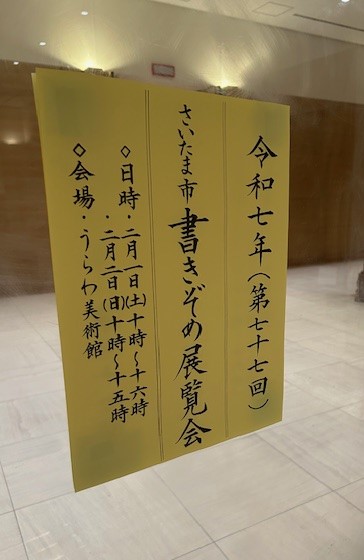 令和七年(第七十七回)
さいたま市書きぞめ展覧会
◇日時・二月一日(土)十時〜十六時
・二月二日(日)十時〜十五時
◇会場・うらわ美術館